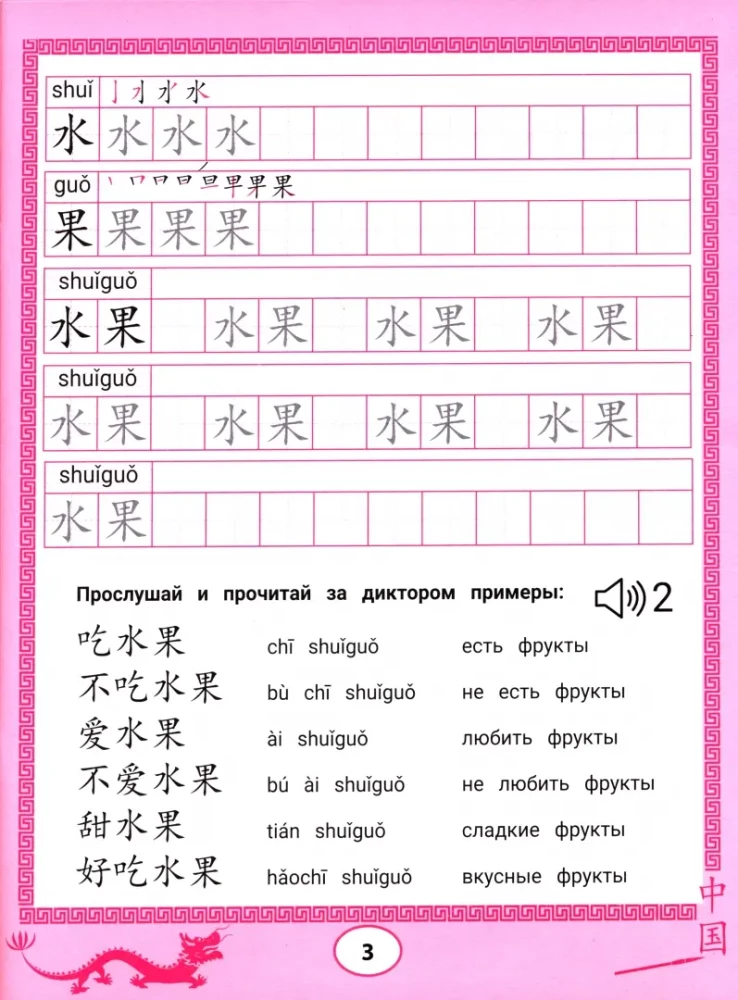 shuǐ
水 水 水 水
guǒ
果 果 果 果
shuǐguǒ
水果 水果 水果 水果
shuǐguǒ
水果 水果 水果 水果
shuǐguǒ
水果
Прослушай и прочитай за диктором примеры: 2
吃水果 chī shuǐguǒ есть фрукты
不吃水果 bù chī shuǐguǒ не есть фрукты
爱水果 ài shuǐguǒ любить фрукты
不爱水果 bú ài shuǐguǒ не любить фрукты
甜水果 tián shuǐguǒ сладкие фрукты
好吃水果 hǎochī shuǐguǒ вкусные фрукты
中国
3